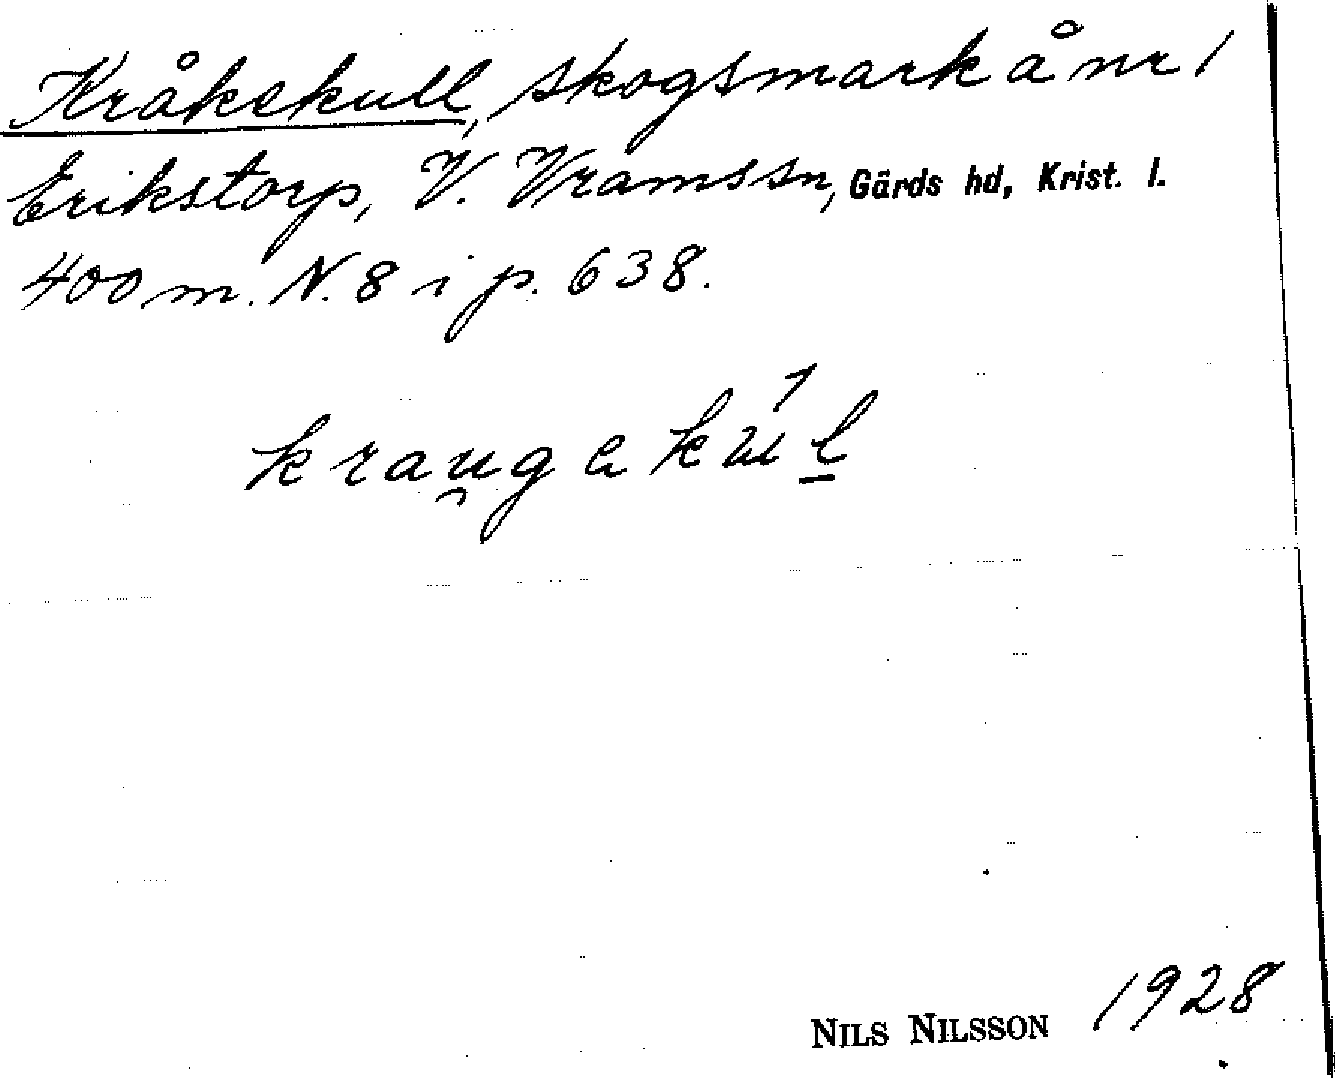 Kråkekull, skogsmark å nr 1
Erikstorp, V. Vramssn, Gärds hd, Krist. l.
400 m. N. 8 i p. 638.
krau̯gəkúl̲
NILS NILSSON 1928